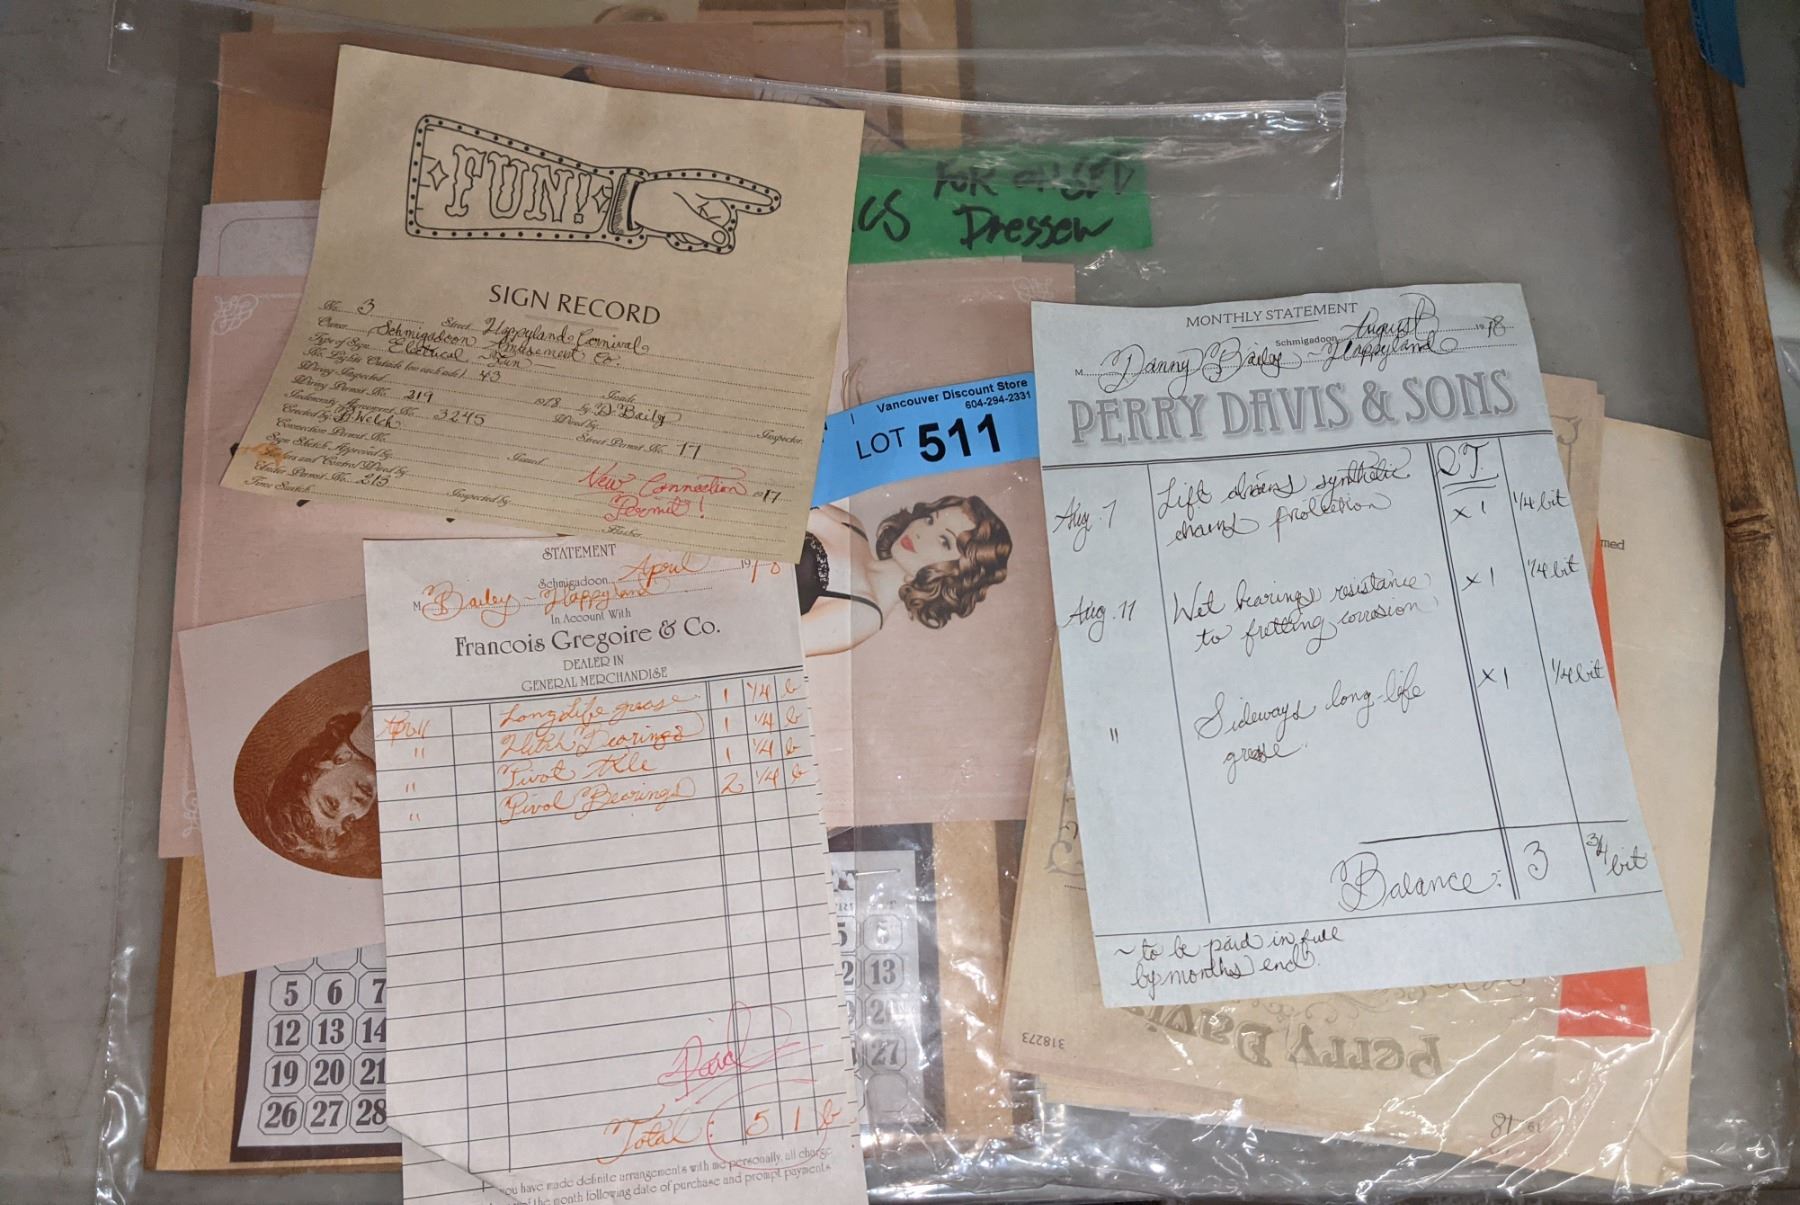 FUN!
SIGN RECORD
No. 3 Street Happyland Carnival
Owner Schmigadoon Amusement Co.
Type of Sign Electrical Fun
No. Lights Outside (on each side) 43
Wiring Inspected Inside
Wiring Permit No. 219 1918 by D. Bailey Inspector.
Indemnity Agreement No. 3245 Wired by
Erected by D. Welch Street Permit No. 17
Connection Permit No.
Sign Sketch Approved by Issued
New Connection 1917
Permit!
Permit No. 215 Inspected by
Time Switch Flasher
FOR
Dressew
Vancouver Discount Store
604-294-2331
LOT 511
STATEMENT
Schmigadoon, April 1918
M Bailey - Happyland
In Account With
Francois Gregoire & Co.
DEALER IN
GENERAL MERCHANDISE
Apr 11 Long Life grease 1 1/4 b
" Hitch Bearings 1 1/4 b
" Pivot 1 1/4 b
" Pivot Bearings 2 1/4 b
Paid
Total: 5 1 b
you have made definite arrangements with me personally, all charge
of the month following date of purchase and prompt payments
MONTHLY STATEMENT
Schmigadoon, August 1918
M. Danny Bailey - Happyland
PERRY DAVIS & SONS
QT.
Aug. 7 Lift chains synthetic
chains protection x 1 1/4 bit
Aug. 11 Wet bearings resistance
to fretting corrosion x 1 1/4 bit
" Sideways long-life
grease. x 1 1/4 bit
Balance: 3 3/4 bit
~ to be paid in full
by months end.
med
5 6 7
12 13 14
19 20 21
26 27 28
5 6
13
27
318273
Perry Davis